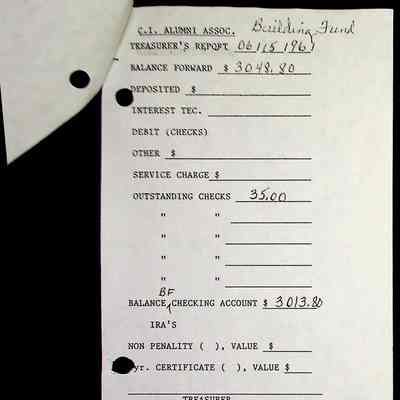 C.I. ALUMNI ASSOC. Building Fund
TREASURER'S REPORT 06/15/96
BALANCE FORWARD $ 3048.80
DEPOSITED $
INTEREST TEC.
DEBIT (CHECKS)
OTHER $
SERVICE CHARGE $
OUTSTANDING CHECKS 35.00
" "
" "
" "
" "
BF
BALANCE CHECKING ACCOUNT $ 3013.80
IRA'S
NON PENALITY ( ), VALUE $
yr. CERTIFICATE ( ), VALUE $
TREASURER